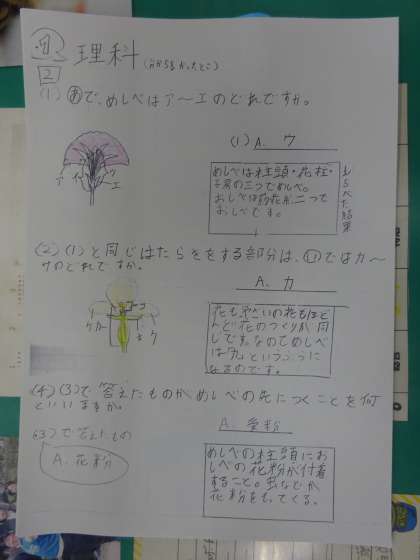 理科
2
(1) あで、めしべはア〜エのどれですか。
(1) A. ウ
ア
イ
ウ
エ
めしべは柱頭・花柱・
子房の三つでめしべ。
おしべは
二つで
おしべです。
しらべた結果
(2) (1)と同じはたらきをする部分は、いではカ〜
ケのどれですか。
A. カ
ケ
カ
ク
花のつくりが同
じです。なのでめしべ
は「カ」という
になるのです。
(4) (3)で答えたものがめしべの先につくことを何
といいますか。
(3)で答えたもの
A. 花粉
A. 受粉
めしべの柱頭にお
しべの花粉が付着
すること。虫などが
花粉をもってくる。